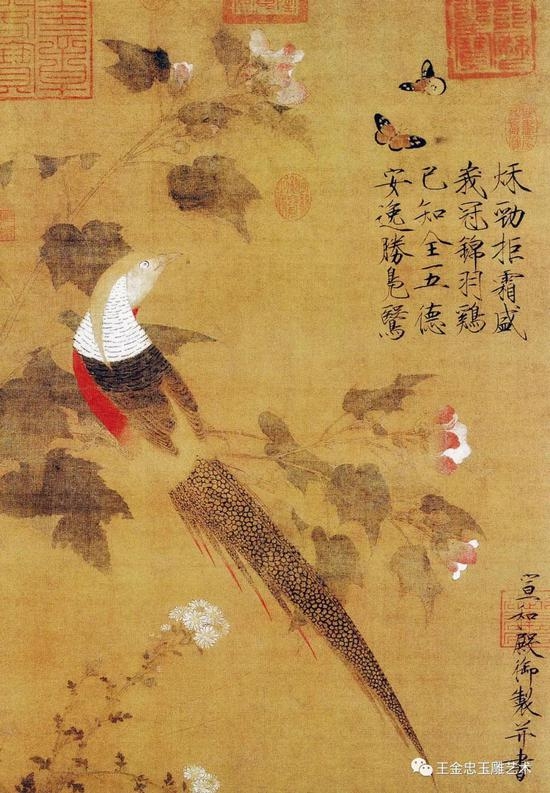 秌勁拒霜盛
峩冠錦羽鷄
已知全五德
安逸勝鳧鷖
宣和殿御製并書
王金忠玉雕艺术